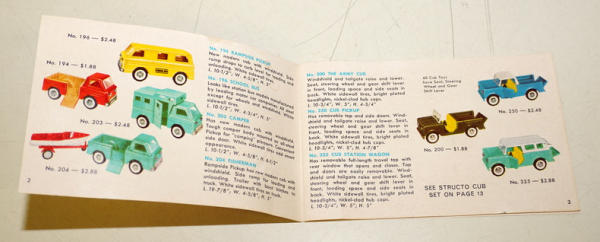 No. 196 — $2.48
No. 194 — $1.88
No. 202 — $2.48
No. 204 — $2.88
2
No. 194 RAMPSIDE PICKUP
New modern cab with windshield. Side
ramp drops to curb level for loading and
unloading. White sidewall tires.
L. 10-1/2", W. 4-5/8", H. 5"
No. 196 SCHOOL BUS
Looks like station bus
by leading motor car companies. All
windows White
sidewall tires.
No. 202 CAMPER
New modern cab with windshield.
Tough camper body
rear door opens.
White sidewall tires.
No. 204 FISHERMAN
Rampside Pickup has new modern cab with
windshield. Side ramp for loading and
unloading. Trailer with boat
truck. White sidewall tires on truck.
L. 19-7/8", W. 4-5/8", H. 5"
No. 200 THE ARMY CUB
Windshield and tailgate raise and lower.
Seat, steering wheel and gear shift lever
in front, loading space and side seats
in back. White sidewall tires, bright plated
headlights, nickel-clad hub caps.
L. 10-3/4", W. 5", H. 4-3/4"
No. 250 CUB PICKUP
Has removable top and side doors. Wind-
shield and tailgate raise and lower. Seat,
steering wheel and gear shift lever in
front, loading space and side seats in
back. White sidewall tires, bright plated
headlights, nickel-clad hub caps.
L. 10-3/4", W. 5", H.
No. 325 CUB STATION WAGON
Has removable full-length travel top with
rear window that opens and closes. Top
and doors are easily removable. Wind-
shield and tailgate raise and lower. Seat,
steering wheel and gear shift lever in
front, loading space and side seats in
back. White sidewall tires, bright plated
headlights, nickel-clad hub caps.
L. 10-3/4", W. 5", H. 5"
All Cub Toys
have Seat, Steering
Wheel and Gear
Shift Lever
No. 250 — $2.48
No. 200 — $1.88
No. 325 — $2.88
SEE STRUCTO CUB
SET ON PAGE 13
3